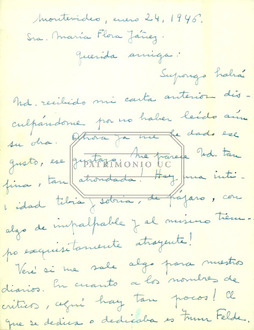 Montevideo, enero 24, 1945.
Sra. María Flora Yáñez.
Querida amiga:
Supongo habrá
Ud. recibido mi carta anterior dis-
culpándome por no haber leído aún
su obra. Ahora ya me he dado ese
gusto, ese. Me parece Ud. tan
fina, tan ahondada! Hay una inti-
idad tibia y sobria, de pájaro, con
algo de impalpable y al mismo tiem-
po exquisitamente atrayente!
Veré si me sale algo para nuestros
diarios. En cuanto a los nombres de
críticos, aquí hay tan pocos! El
que se dedica o dedicaba es Zum Felde.
PATRIMONIO UC